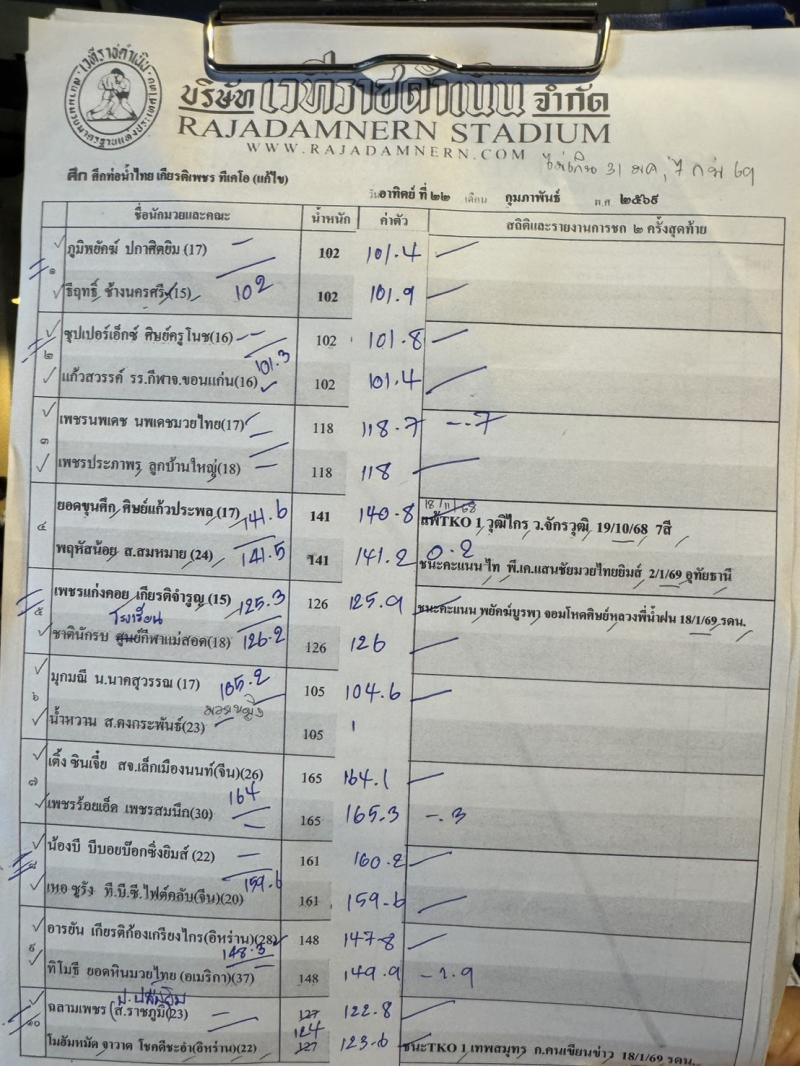 เวทีราชดำเนิน
บริษัท เวทีราชดำเนิน จำกัด
RAJADAMNERN STADIUM
WWW.RAJADAMNERN.COM
31 มค, 7 กพ 69
ศึก ศึกท่อน้ำไทย เกียรติเพชร ทีเคโอ (แก้ไข)
วันอาทิตย์ ที่ ๒๒ เดือน กุมภาพันธ์ พ.ศ ๒๕๖๙
ชื่อนักมวยและคณะ น้ำหนัก ค่าตัว สถิติและรายงานการชก ๒ ครั้งสุดท้าย
๑ ภูมิพยัคฆ์ ปกาศิตยิม (17) 102 101.4
ธีฤทธิ์ ช้างนครศรี(15) 102 102 101.9
๒ ซุปเปอร์เอ็กซ์ ศิษย์ครูโนช(16) 102 101.8
แก้วสวรรค์ รร.กีฬาจ.ขอนแก่น(16) 101.3 102 101.4
๓ เพชรนพเดช นพเดชมวยไทย(17) 118 118.7 -.7
เพชรประภาพร ลูกบ้านใหญ่(18) 118 118
๔ ยอดขุนศึก ศิษย์แก้วประพล (17) 141.6 141 140.8 แพ้TKO 1 วุฒิไกร ว.จักรวุฒิ 19/10/68 7สี
18/11/68
พฤหัสน้อย ส.สมหมาย (24) 141.5 141 141.2 0.2 ชนะคะแนน ไท พี.เค.แสนชัยมวยไทยยิมส์ 2/1/69 อุทัยธานี
๕ เพชรแก่งคอย เกียรติจำรูญ (15) 125.3 126 125.9 ชนะคะแนน พยัคฆ์บูรพา จอมโหดศิษย์หลวงพี่น้ำฝน 18/1/69 รดน.
โรงเรียน
ชาตินักรบ ศูนย์กีฬาแม่สอด(18) 126.2 126 126
๖ มุกมณี น.นาคสุวรรณ (17) 105.2 105 104.6
มวยหญิง
น้ำหวาน ส.คงกระพันธ์(23) 105
๗ เติ้ง ซินเจี๋ย สจ.เล็กเมืองนนท์(จีน)(26) 165 164.1
เพชรร้อยเอ็ด เพชรสมนึก(30) 164 165 165.3 -.3
๘ น้องบี บีบอยบ๊อกซิ่งยิมส์ (22) 161 160.2
เหอ ซูรัง ที.บี.ซี.ไฟต์คลับ(จีน)(20) 159.6 161 159.6
๙ อารยัน เกียรติก้องเกรียงไกร(อิหร่าน)(28) 148 147.8
ทิโมธี ยอดหินมวยไทย (อเมริกา)(37) 148.3 148 149.9 -1.9
๑๐ ฉลามเพชร (ส.ราชภูมิ)(23) 127 122.8
124
โมฮัมหมัด จาวาด โชคดีชะอำ(อิหร่าน)(22) 127 123.6 ชนะTKO 1 เทพสมุทร ก.คนเขียนข่าว 18/1/69 รดน.